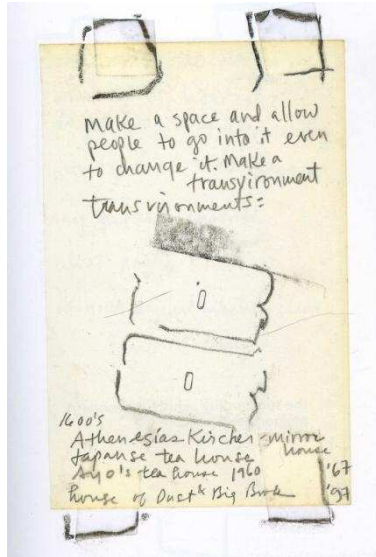 make a space and allow
people to go into it even
to change it. Make a
transvironment
transvironments:
1600's
Athenesias Kircher - mirror house
Japanse tea house
Ay o's tea house 1960
house of Dust & Big Book '67 '97